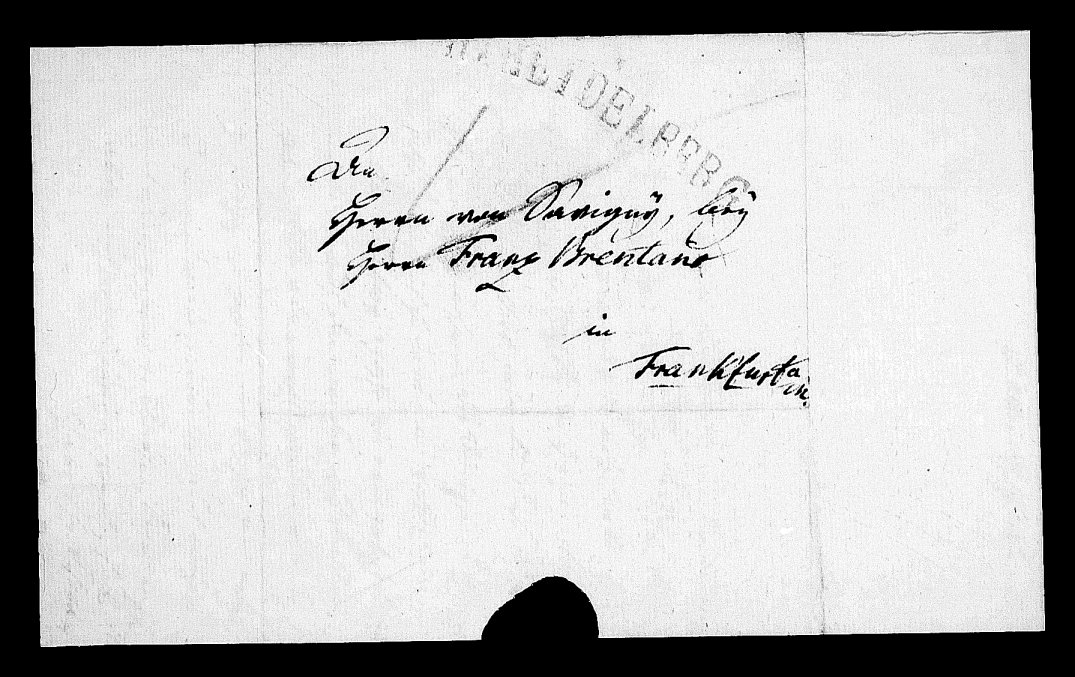 HEIDELBERG
An
Herrn von Savigny, bey
Herrn Franz Brentano
in
Frankfurt a
m.